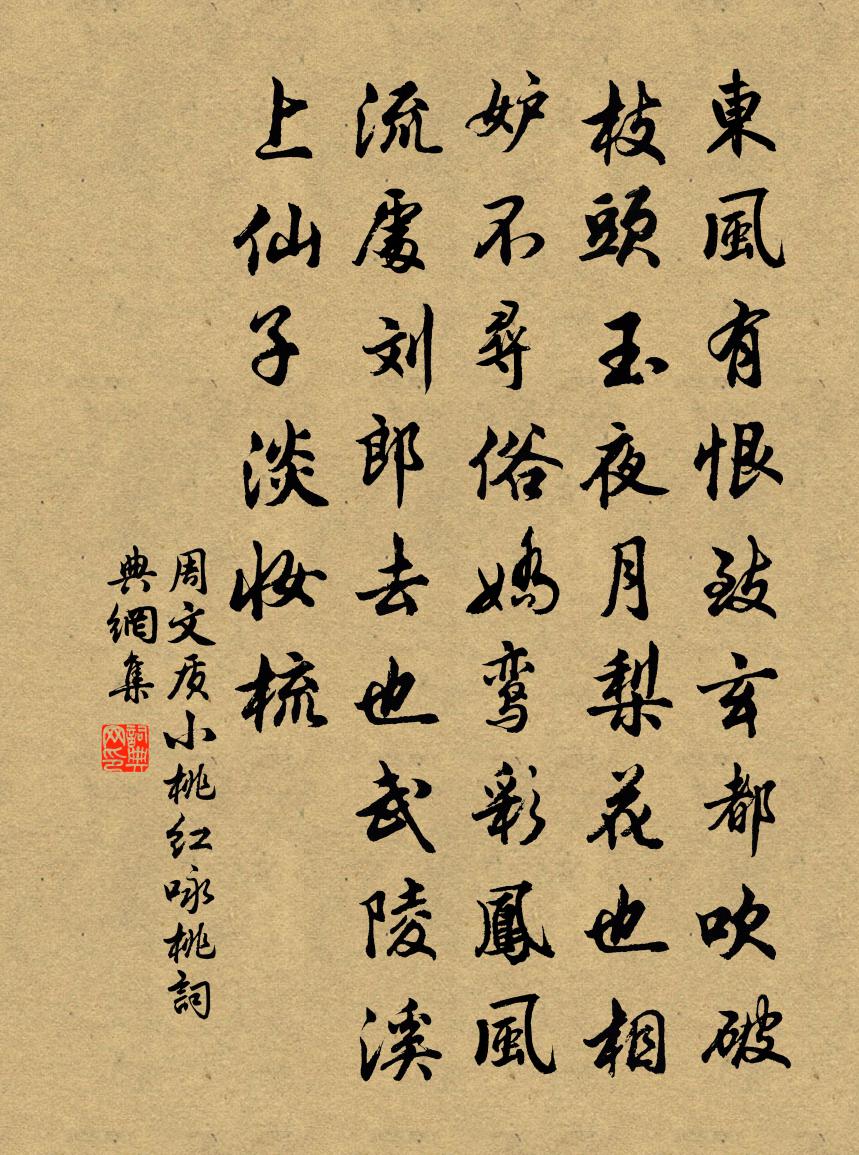 東風有恨致玄都吹破
枝頭玉夜月梨花也相
妒不尋俗嬌鸾彩鳳風
流處刘郎去也武陵溪
上仙子淡妆梳
周文质小桃红咏桃詞
典網集
詞典網印